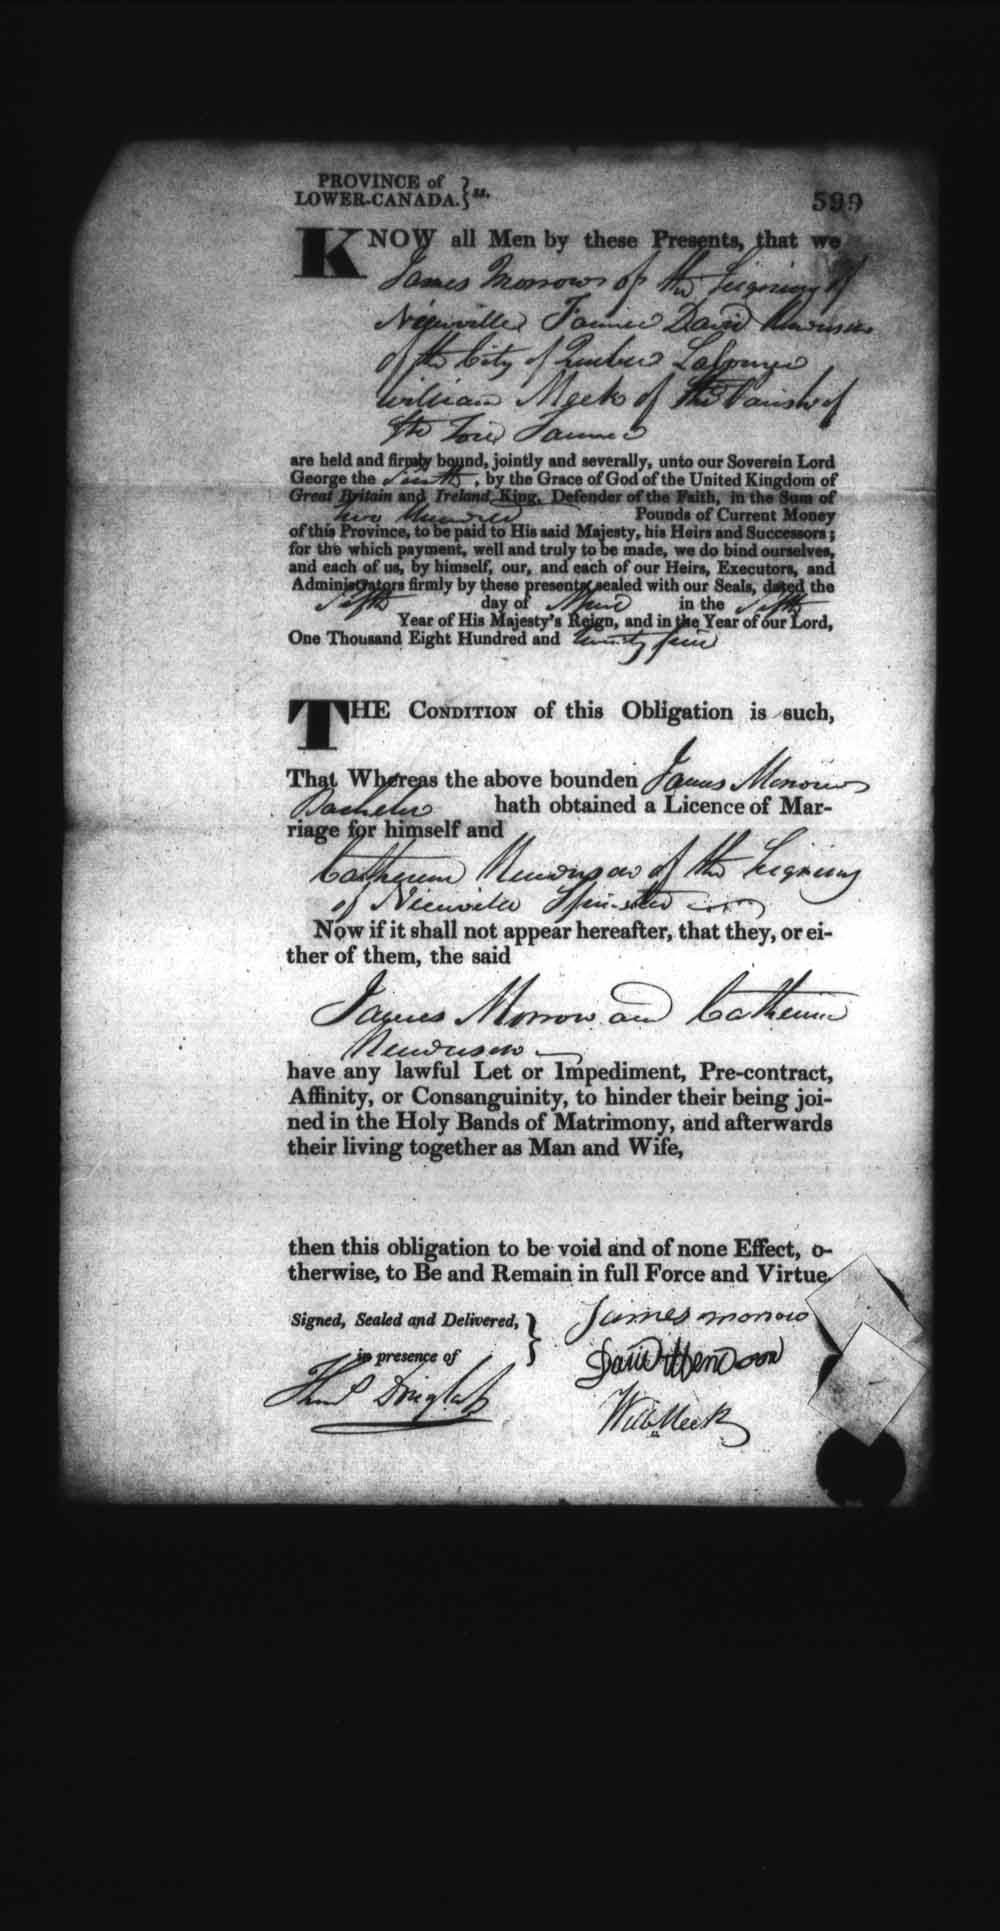 PROVINCE of
LOWER-CANADA. } ss.
599
KNOW all Men by these Presents, that we
James Morrow of the Seigniory of
Nieuville Farmer David
of the City of Quebec Labourer
William Meek of the Parish of
Ste Foie Farmer
are held and firmly bound, jointly and severally, unto our Soverein Lord
George the Fourth, by the Grace of God of the United Kingdom of
Great Britain and Ireland, King, Defender of the Faith, in the Sum of
two Hundred Pounds of Current Money
of this Province, to be paid to His said Majesty, his Heirs and Successors;
for the which payment, well and truly to be made, we do bind ourselves,
and each of us, by himself, our, and each of our Heirs, Executors, and
Administrators firmly by these presents sealed with our Seals, dated the
fifth day of April in the fifth
Year of His Majesty's Reign, and in the Year of our Lord,
One Thousand Eight Hundred and twenty four
THE CONDITION of this Obligation is such,
That Whereas the above bounden James Morrow
Bachelor hath obtained a Licence of Mar-
riage for himself and
Catherine of the Seigniory
of Nieuville Spinster
Now if it shall not appear hereafter, that they, or ei-
ther of them, the said
James Morrow and Catherine
have any lawful Let or Impediment, Pre-contract,
Affinity, or Consanguinity, to hinder their being joi-
ned in the Holy Bands of Matrimony, and afterwards
their living together as Man and Wife,
then this obligation to be void and of none Effect, o-
therwise, to Be and Remain in full Force and Virtue.
Signed, Sealed and Delivered, }
in presence of
James morrow
David
Will Meek